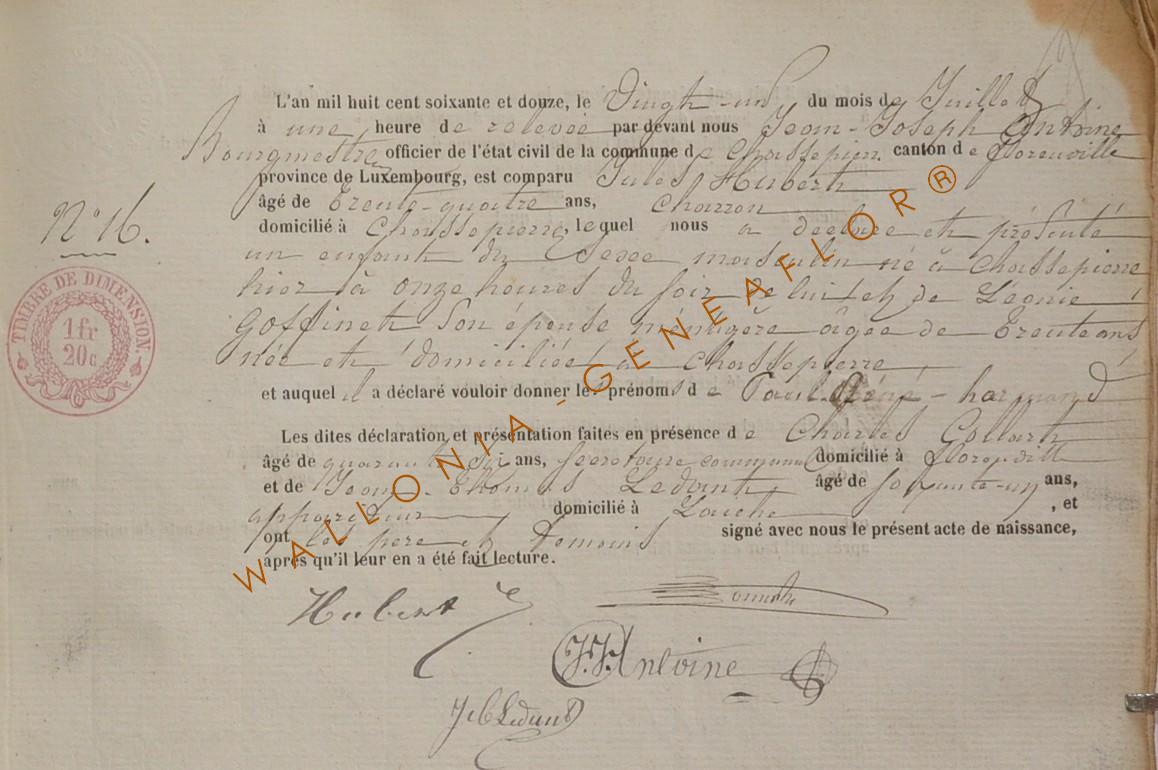 L'an mil huit cent soixante et douze, le Vingt-un du mois de Juillet
à une heure de relevée par devant nous Jean-Joseph Antoine
Bourgmestre officier de l'état civil de la commune de Chassepierre canton de Florenville
province de Luxembourg, est comparu Jules Hubert
âgé de trente-quatre ans, charron
domicilié à Chassepierre, lequel nous a déclaré et présenté
N° 16.
un enfant du sexe masculin né à Chassepierre
hier à onze heures du soir de lui et de Léonie
Goffinet son épouse ménagère âgée de trente ans
née et domiciliée à Chassepierre
TIMBRE DE DIMENSION.
1 fr
20c
et auquel il a déclaré vouloir donner les prénoms de Paul René - harmand
Les dites déclaration et présentation faites en présence de Charles Collart
âgé de quarante six ans, secrétaire communal domicilié à Florenville
et de Jean - Thomas Ledant, âgé de soixante-un ans,
appariteur domicilié à Laiche, et
ont les père et témoins signé avec nous le présent acte de naissance,
après qu'il leur en a été fait lecture.
Hubert J
J.J. Antoine
Ledant
WALLONIA - GENEAFLOR ®